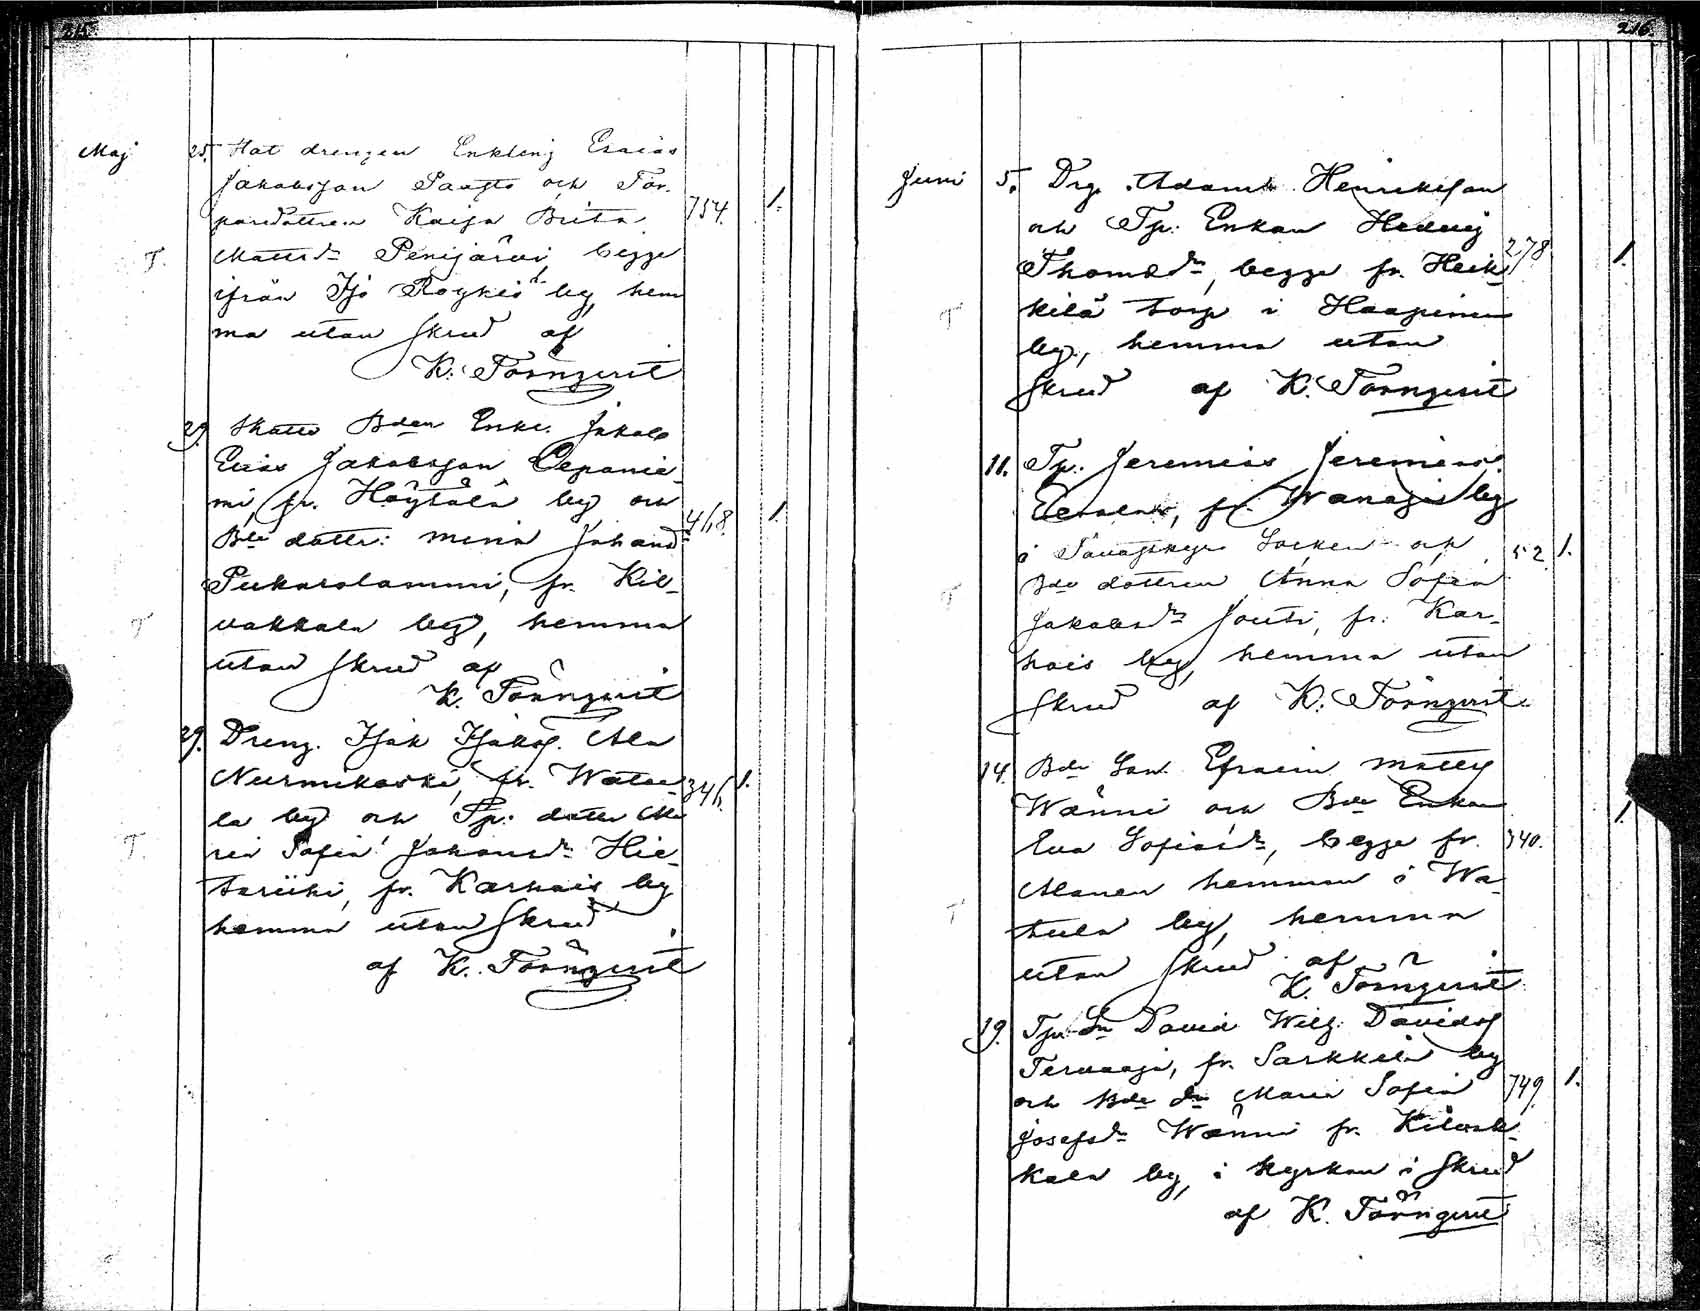 215.
Maj 25. Hat drengen Enkling Esaias
Jakobsson Paasto och Tor-
paredottren Kaisa Brita 754. 1.
T. Mattsdr Penijärvi begge
ifrån Iso Röykkis by hem
ma utan skrud af
K. Törnqvist
29. Skatte Bden Enkl. Jakob
Elias Jakobsson Lepänie-
mi, fr. Höytölä by och
Bde dottr: Maria Johansdr 418. 1.
Pukarolammi, fr. Kil-
T vakkala by, hemma
utan skrud af
K. Törnqvist
29. Dreng. Isak Isaks. Ala
Nurmikoski, fr. Watu- 346. 1.
la by och Tp: dottr Ma
T. ria Sofia Johansdr Hie-
tariihi, fr. Karhois by
hemma utan skrud
af K. Törnqvist
216.
Juni 5. Drg. Adam Henriksson
och Tp: Enkan Hedvig 278. 1.
Thomasdr, begge fr. Heik-
T kilä torp i Haapimaa
by, hemma utan
skrud af K. Törnqvist
11. Tp: Jeremias Jeremiass.
Eerola, fr. Wanaja by
i Tavastkyro Socken och 52. 1.
T Bde dottren Anna Sofia
Jakobsdr Jouti, fr. Kar-
hois by, hemma utan
skrud af K. Törnqvist
14. Bde Son Efraim Matts
Wänni och Bde Enkan 1.
Eva Sofiasdr, begge fr. 340.
Alanen hemman i Wa-
T tula by, hemma
utan skrud af
K. Törnqvist
19. Tp: Sn David Wilh. Davids
Tervaaja, fr. Sarkkila by
och Bde dr Maria Sofia 749. 1.
Josefsdr Wänni fr. Kilvak-
kala by, i kyrkan i skrud
af K. Törnqvist